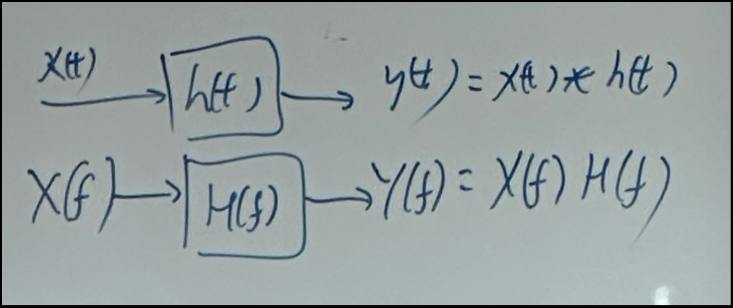 x(t) → h(t) → y(t) = x(t) * h(t)
X(f) → H(f) → Y(f) = X(f) H(f)